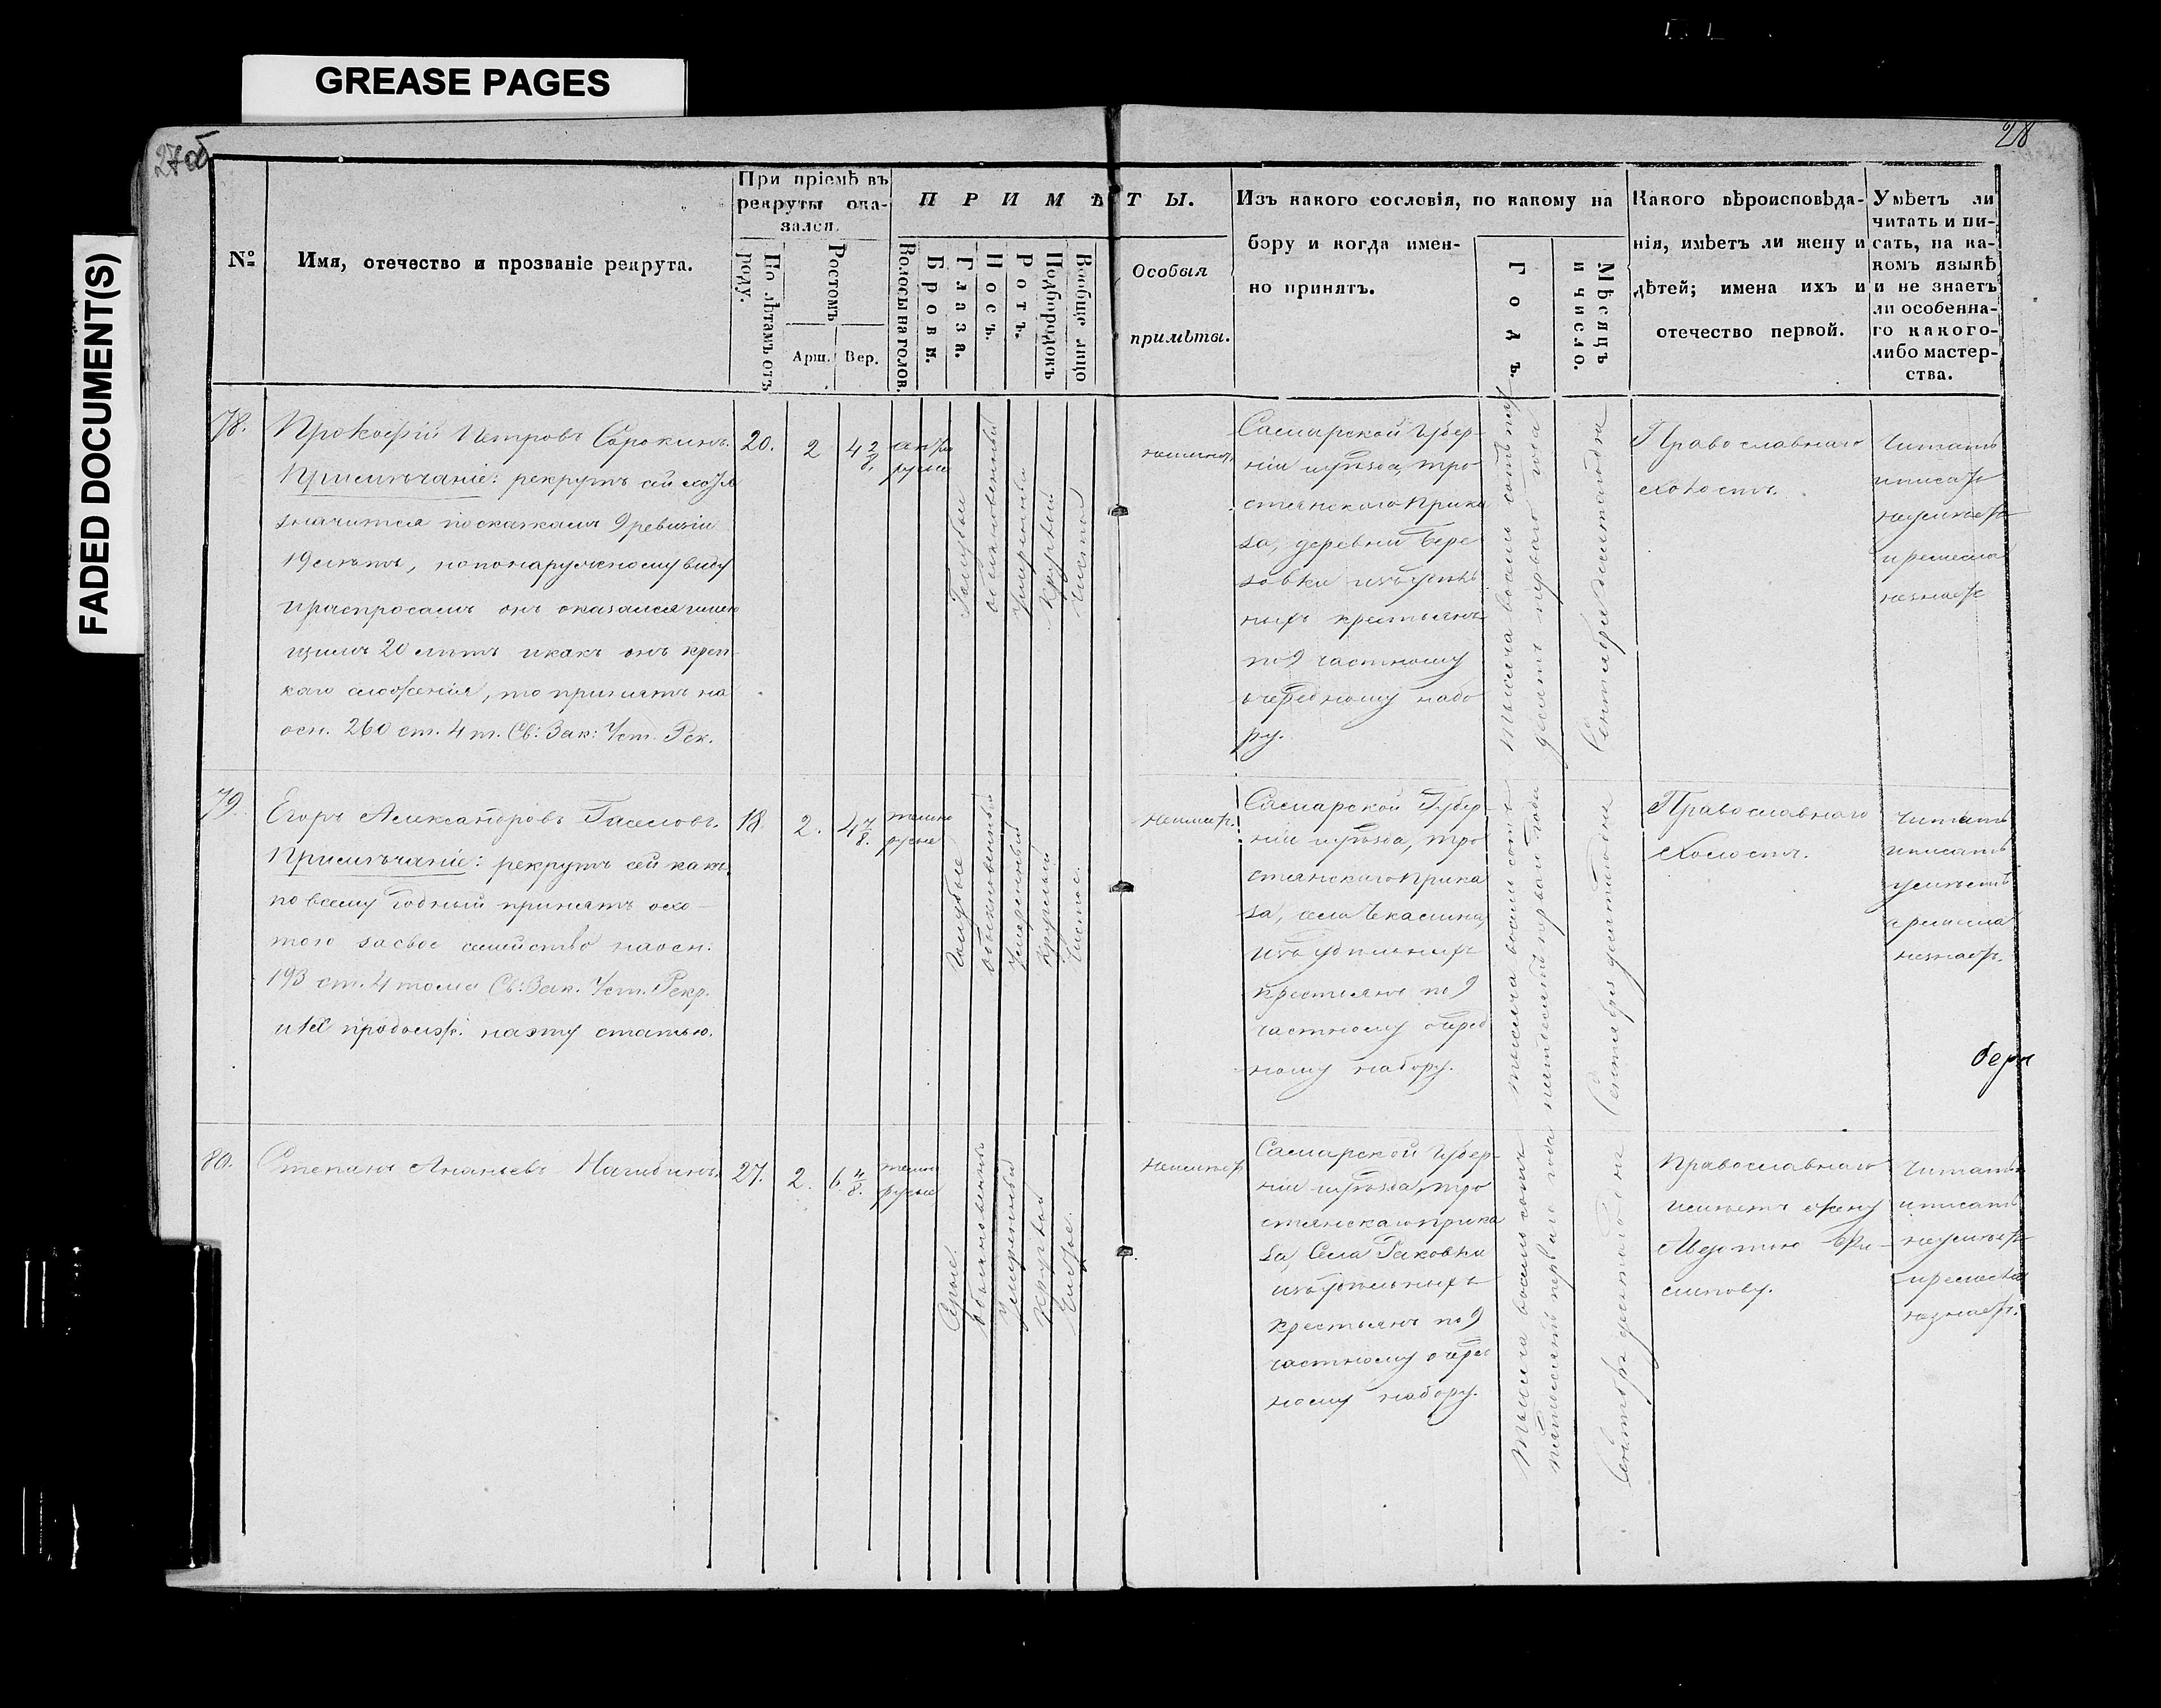 GREASE PAGES
FADED DOCUMENT(S)
27об
28
№
Имя, отечество и прозваніе рекрута.
При пріемѣ въ
рекруты ока-
зался.
По лѣтамъ отъ
роду.
Ростомъ
Арш.
Вер.
ПРИМѢТЫ.
Волосы на голов.
Брови.
Глаза.
Носъ.
Ротъ.
Подбородокъ
Вообще лицо
Особыя
примѣты.
Изъ какого сословія, по какому на
бору и когда имен-
но принятъ.
Годъ.
Мѣсяцъ
и число.
Какого вѣроисповѣда-
нія, имѣетъ ли жену и
дѣтей; имена ихъ и
отечество первой.
Умѣетъ ли
читать и пи-
сать, на ка-
комъ языкѣ
и не знаетъ
ли особенна-
го какого-
либо мастер-
ства.
78.
Прокофій Петровъ Сорокинъ.
Примѣчаніе: рекрутъ сей хотя
значится по сказкамъ 9 ревизіи
19 лѣтъ, но по наружному виду
и распросамъ онъ оказался имею
щимъ 20 лѣтъ и какъ онъ креп
каго сложенія, то принятъ на
осн. 260 ст. 4 т. Св: Зак: Уст. Рек.
20.
2
4 2/8.
русые
Голубые
обыкновенный
Умеренный
Круглый
Чистое
Самарской Губер-
ніи и уѣзда, тро
стянскаго Прика
за, деревни Бере
зовки изъ удѣль
ныхъ крестьянъ
по 9 частному
очередному набо
ру.
Тысяча восемь сотъ пять
десятъ перваго года
Православнаго
холостъ.
Читать
и писать
неумѣетъ
и ремесла
незнаетъ
79.
Егоръ Александровъ
Примѣчаніе: рекрутъ сей какъ
по всему годный принятъ охо-
тою за свое семейство на осн.
193 ст. 4 тома Св: Зак. Уст. Рекр.
на эту статью.
18.
2.
4 7/8.
темно
русые
Голубые
обыкновенный
Умеренный
Круглый
Чистое.
неимѣетъ.
Самарской Губер-
ніи и уѣзда, тро
стянскаго Прика
за, села
изъ удѣльныхъ
крестьянъ по 9
частному очеред
ному набору.
Тысяча восемь сотъ
пятьдесятъ перваго года
Православнаго
Холостъ.
Читать
и писать
умѣетъ
а ремесла
незнаетъ.
80.
Степанъ Ананьевъ
27.
2.
6 4/8.
темно
русые
Серые.
обыкновенный
Умеренный
Круглый
Чистое.
неимѣетъ
Самарской Губер-
ніи и уѣзда, тро
стянскаго прика
за, Села Раковки
изъ удѣльныхъ
крестьянъ по 9
частному очеред
ному набору.
Тысяча восемь сотъ
пятьдесятъ перваго года
Православнаго
имѣетъ жену
Читать
и писать
неумѣетъ
и ремесла
незнаетъ.